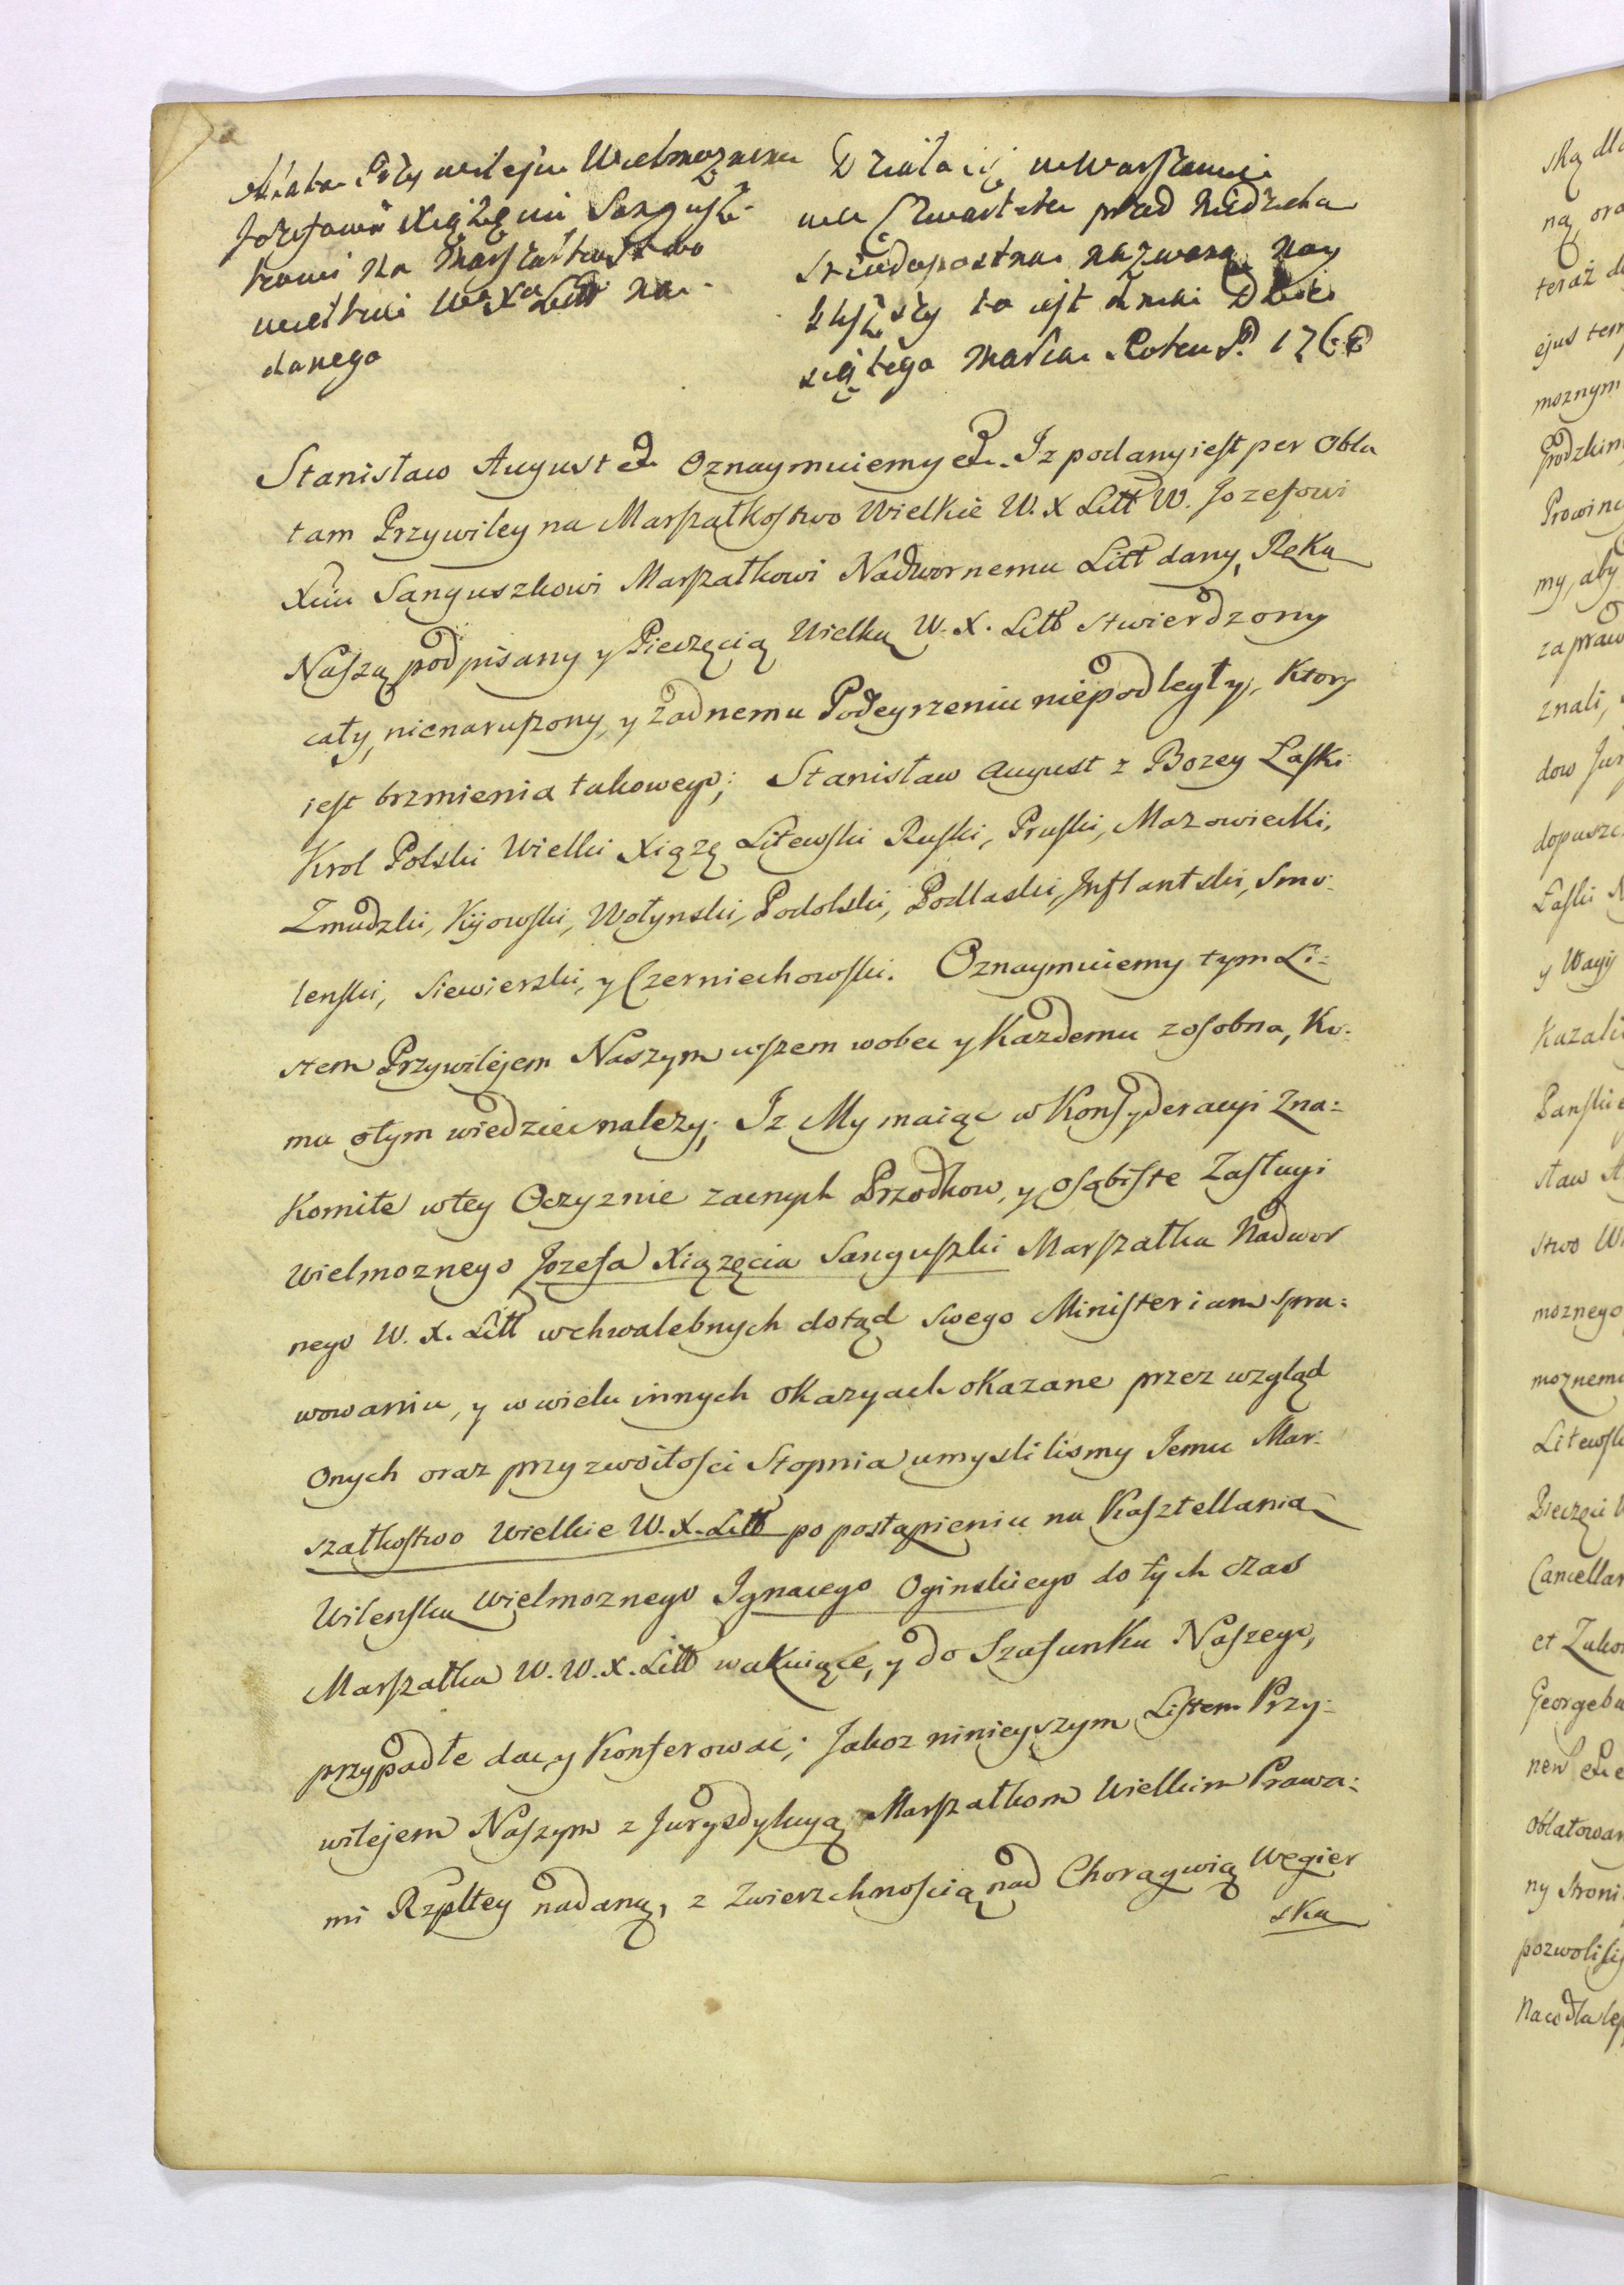 Oblata Przywileju Wielmoznemu
Jozefowi Xiążęciu Sangusz-
kowi na Marszałkowstwo
wielkie Wo Xa Litt na-
danego
Działo się w Warszawie
we Czwartek przed Niedziela
Srzodopostna nazwaną nay
bliższy to iest dnia Dzie
siątego Marca Roku P. 176
Stanisław August &c. Oznaymuiemy &c. Iz podany iest per Obla
tam Przywiley na Marszałkostwo Wielkie W. X Litt W. Jozefowi
Xciu Sanguszkowi Marszałkowi Nadwornemu Litt dany, Ręką
Naszą podpisany y Pieczęcią Wielką W. X. Litt stwierdzony
cały, nienaruszony, y żadnemu Podeyrzeniu niepodległy, Ktory
iest brzmienia takowego; Stanisław August z Bozey Łaski
Krol Polski Wielki Xiąze Litewski Ruski, Pruski, Mazowiecki,
Zmudzki, Kijowski, Wołynski, Podolski, Podlaski, Inflantski, Smo-
lenski, Siewierski, y Czerniechowski. Oznaymuiemy tym Li=
stem Przywilejem Naszym wszem wobec y Kazdemu zosobna, Ko-
mu otym wiedziec nalezy; Iz My maiąc w Konsyderacyi Zna=
Komite wtey Oczyznie zacnych Przodkow, y osobiste Zasługi
Wielmoznego Jozefa Xiązęcia Sanguszki Marszałka Nadwor
nego W. X. Litt wchwalebnych dotąd Swego Ministerium spra=
wowaniu, y w wielu innych okazyach okazane przez wzgląd
Onych oraz przyzwoitosci Stopnia umyslilismy Jemu Mar-
szałkostwo Wielkie W. X. Litt po postąpieniu na Kasztellanią
Wilenską Wielmoznego Ignacego Oginskiego do tych czas
Marszałka W. W. X. Litt wakuiące, y do Szafunku Naszego,
przypadłe dac y Konferowac; Jakoz ninieyszym Listem Przy-
wilejem Naszym z Jurysdykcyą Marszałkom Wielkim Prawa=
mi Rzpltey nadaną, z Zwierzchnoscią nad Chorągwią Węgier
ską
ską dla
ną, ora
teraz d
ejus tem
moznym
Grodzkim
Prowinc
my, aby
za praw
znali,
dow Jur
dopuszc
Łaski N
y Wagi
Kazali
Panskie
sław A
stwo Wi
moznego
moznemu
Litewsk
Pieczęci
Cancellar
et Zuko
Georgebu
nen
oblatowan
ny Stroni
pozwolili
Na co dla lep